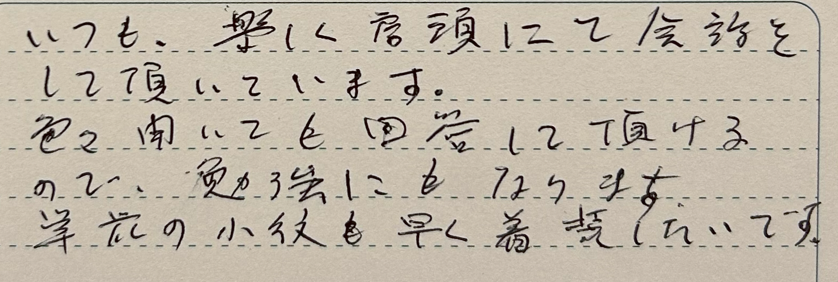 いつも、楽しく店頭にて会話を
して頂いています。
色々聞いても回答して頂ける
ので、勉強にもなります
単衣の小紋も早く着たいです